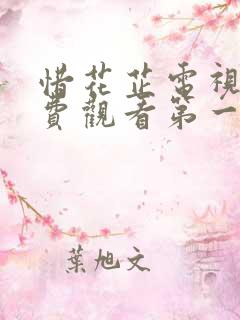 惜花芷電視
費觀看第一
葉旭文